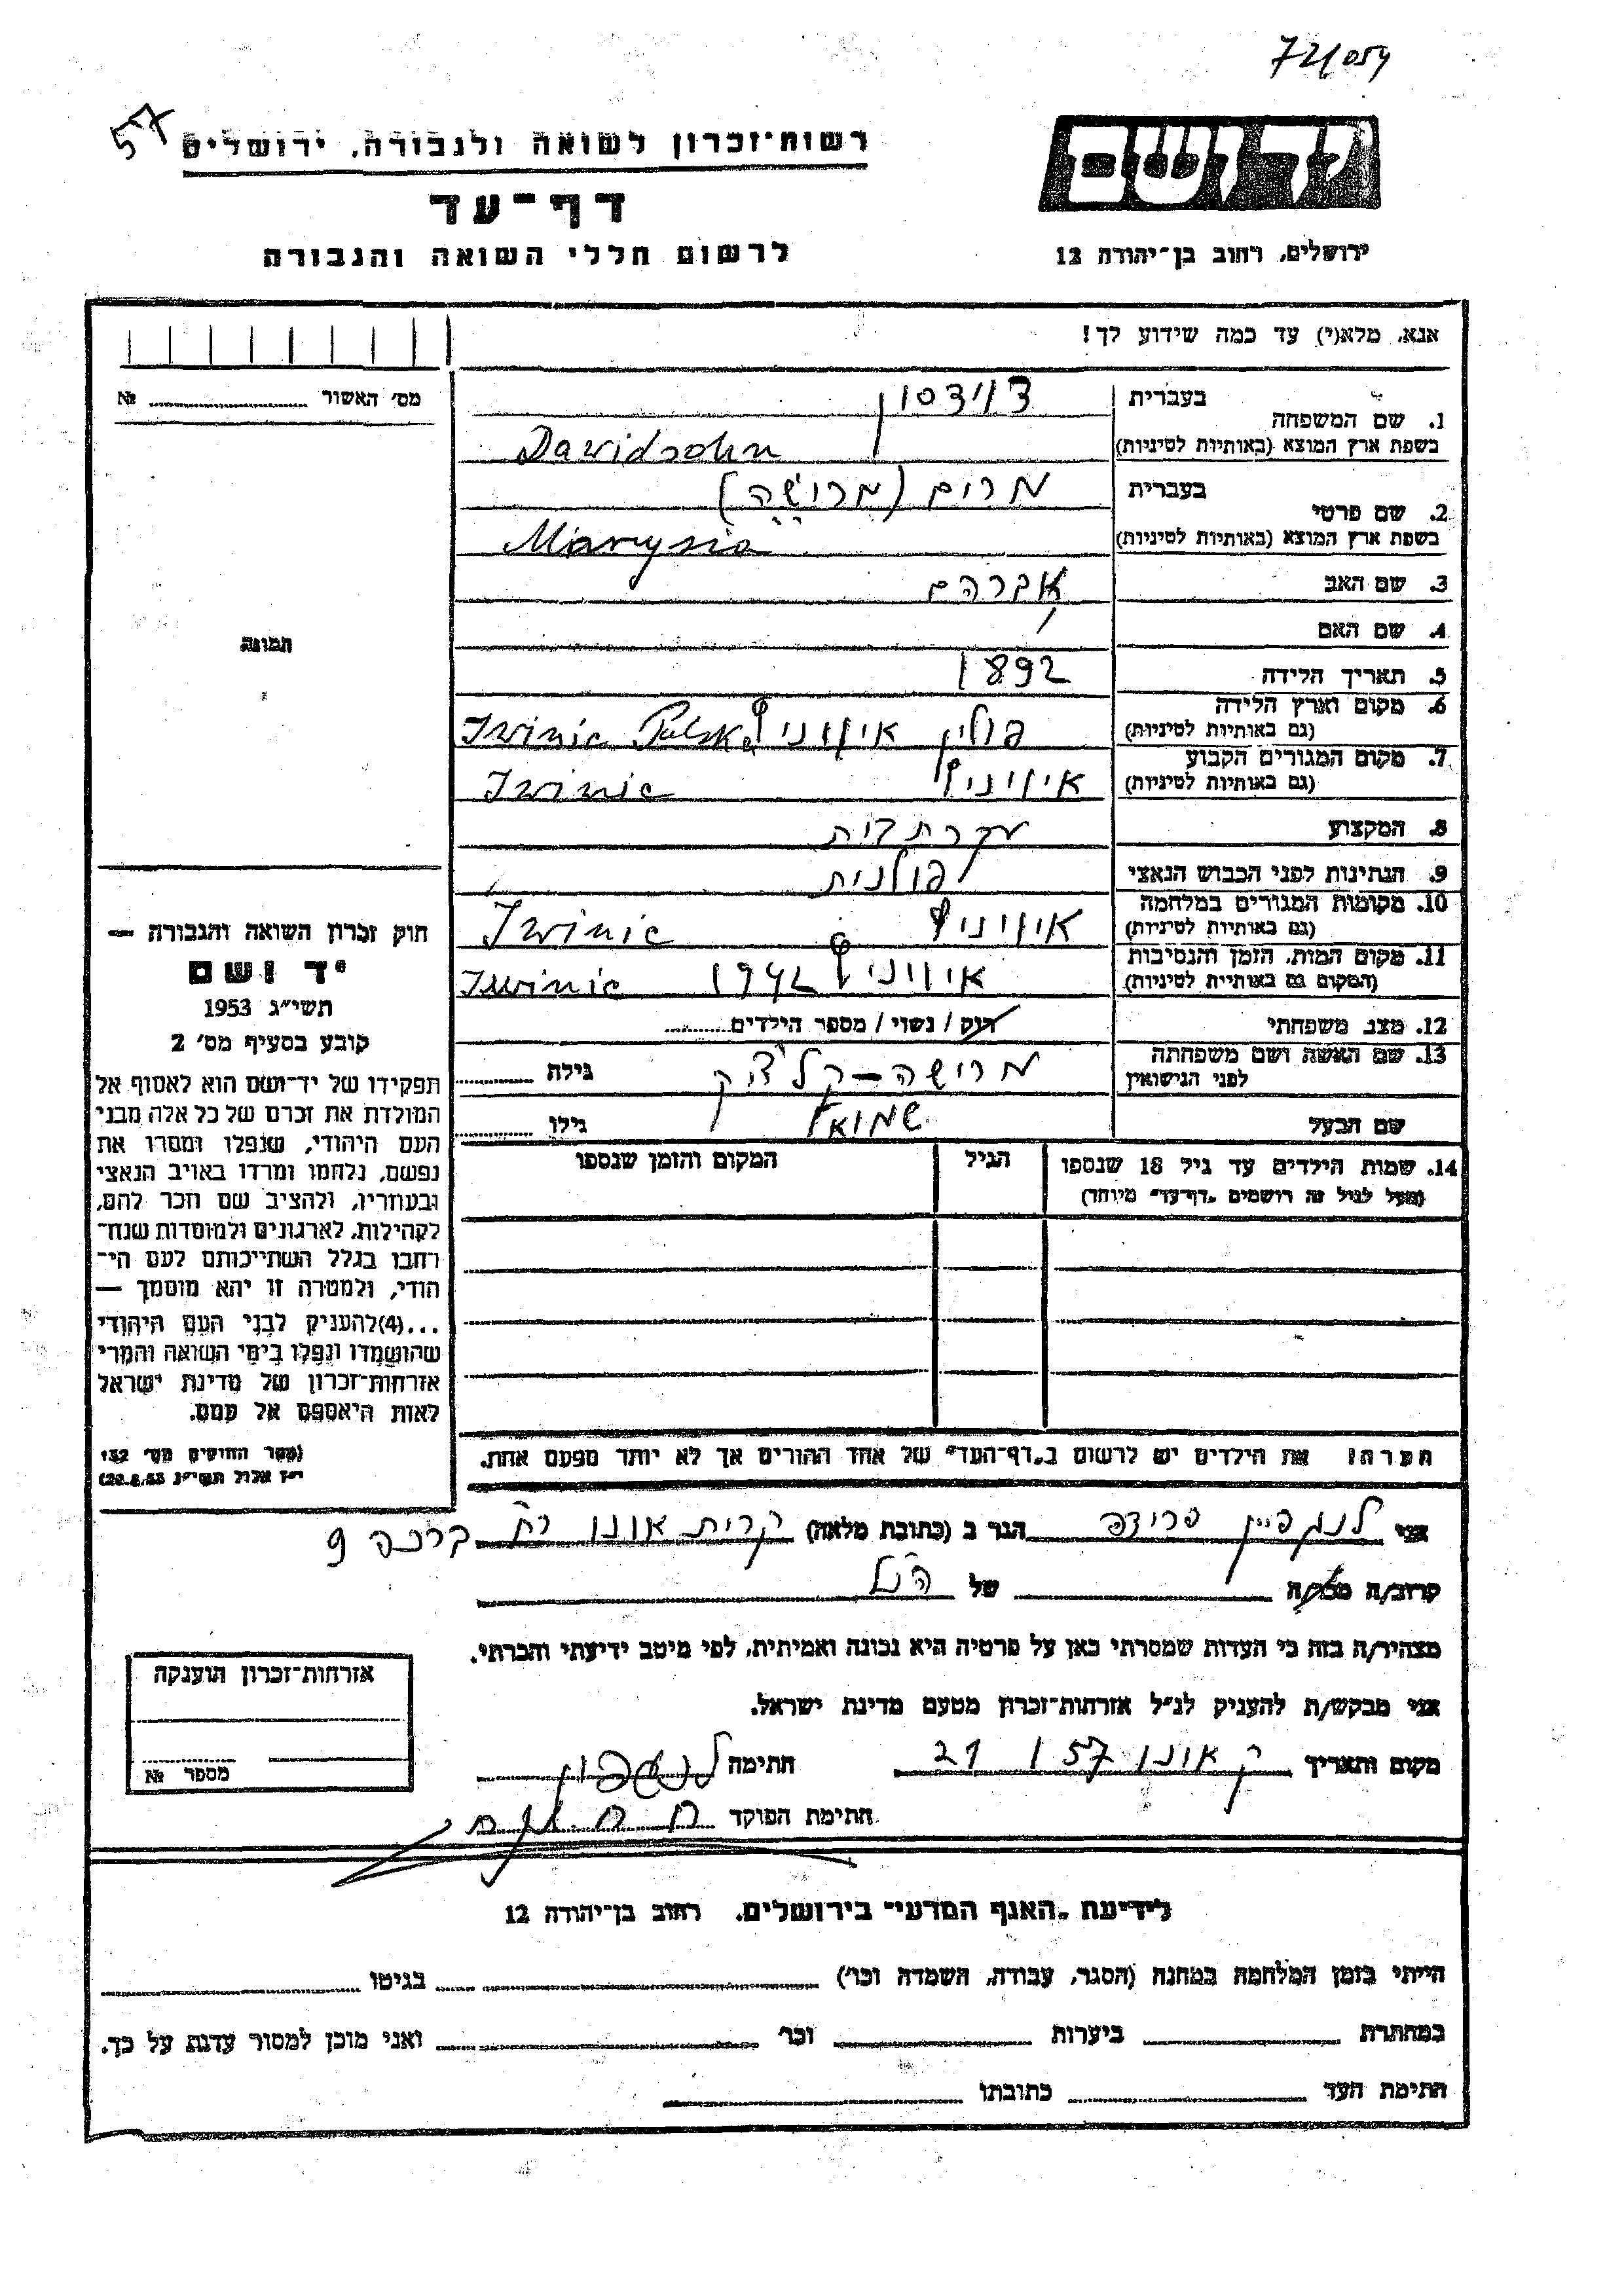 72/054
57
רשות־זכרון לשואה ולגבורה, ירושלים
דף־עד
לרשום חללי השואה והגבורה
יד ושם
ירושלים, רחוב בן־יהודה 12
אנא, מלא(י) עד כמה שידוע לך!
מס׳ האשור № 
1. שם המשפחה
בעברית דוידסון
בשפת ארץ המוצא (באותיות לטיניות) Davidsohn
2. שם פרטי
בעברית מרים (מרושה)
בשפת ארץ המוצא (באותיות לטיניות) Marysia
3. שם האב אברהם
4. שם האם
תמונה
5. תאריך הלידה 1892
6. מקום וארץ הלידה (גם באותיות לטיניות) פולין איווניץ Iwinic Polska
7. מקום המגורים הקבוע (גם באותיות לטיניות) איווניץ Iwinic
8. המקצוע עקרת בית
9. הנתינות לפני הכבוש הנאצי פולנית
10. מקומות המגורים במלחמה (גם באותיות לטיניות) איווניץ Iwinic
11. מקום המות, הזמן והנסיבות (המקום גם באותיות לטיניות) איווניץ 1942 Iwinic
12. מצב משפחתי רווק / נשוי / מספר הילדים
13. שם האשה ושם משפחתה לפני הנישואין מרושה – גילה
שם הבעל שמואל גילו
14. שמות הילדים עד גיל 18 שנספו
(מעל לגיל זה רושמים "דף־עד" מיוחד)
הגיל
המקום והזמן שנספו
הערה: את הילדים יש לרשום ב"דף־העד" של אחד ההורים אך לא יותר מפעם אחת.
חוק זכרון השואה והגבורה —
יד ושם
תשי״ג 1953
קובע בסעיף מס׳ 2
תפקידו של יד־ושם הוא לאסוף אל
המולדת את זכרם של כל אלה מבני
העם היהודי, שנפלו ומסרו את
נפשם, נלחמו ומרדו באויב הנאצי
ובעוזריו, ולהציב שם וזכר להם,
לקהילות, לארגונים ולמוסדות שנח־
רבו בגלל השתייכותם לעם הי־
הודי, ולמטרה זו יהא מוסמך —
...(4)להעניק לבני העם היהודי
שהושמדו ונפלו בימי השואה והמרי
אזרחות־זכרון של מדינת ישראל
לאות היאספם אל עמם.
(ספר החוקים מס׳ 132
י״ז אלול תשי״ג 28.8.53)
אני פרידה הגר ב (כתובת מלאה) קרית אונו רח׳ ברכה 9
קרוב/ה מכר/ה של הנ״ל
מצהיר/ה בזה כי העדות שמסרתי כאן על פרטיה היא נכונה ואמיתית, לפי מיטב ידיעתי והכרתי.
אני מבקש/ת להעניק לנ״ל אזרחות־זכרון מטעם מדינת ישראל.
מקום ותאריך ק אונו 21 I 57 חתימה
חתימת הפוקד
אזרחות־זכרון הוענקה
מספר №
לידיעת "האגף המדעי" בירושלים, רחוב בן־יהודה 12
הייתי בזמן המלחמה במחנה (הסגר, עבודה, השמדה וכו׳) בגיטו
במחתרת ביערות וכו׳ ואני מוכן למסור עדות על כך.
חתימת העד כתובתו